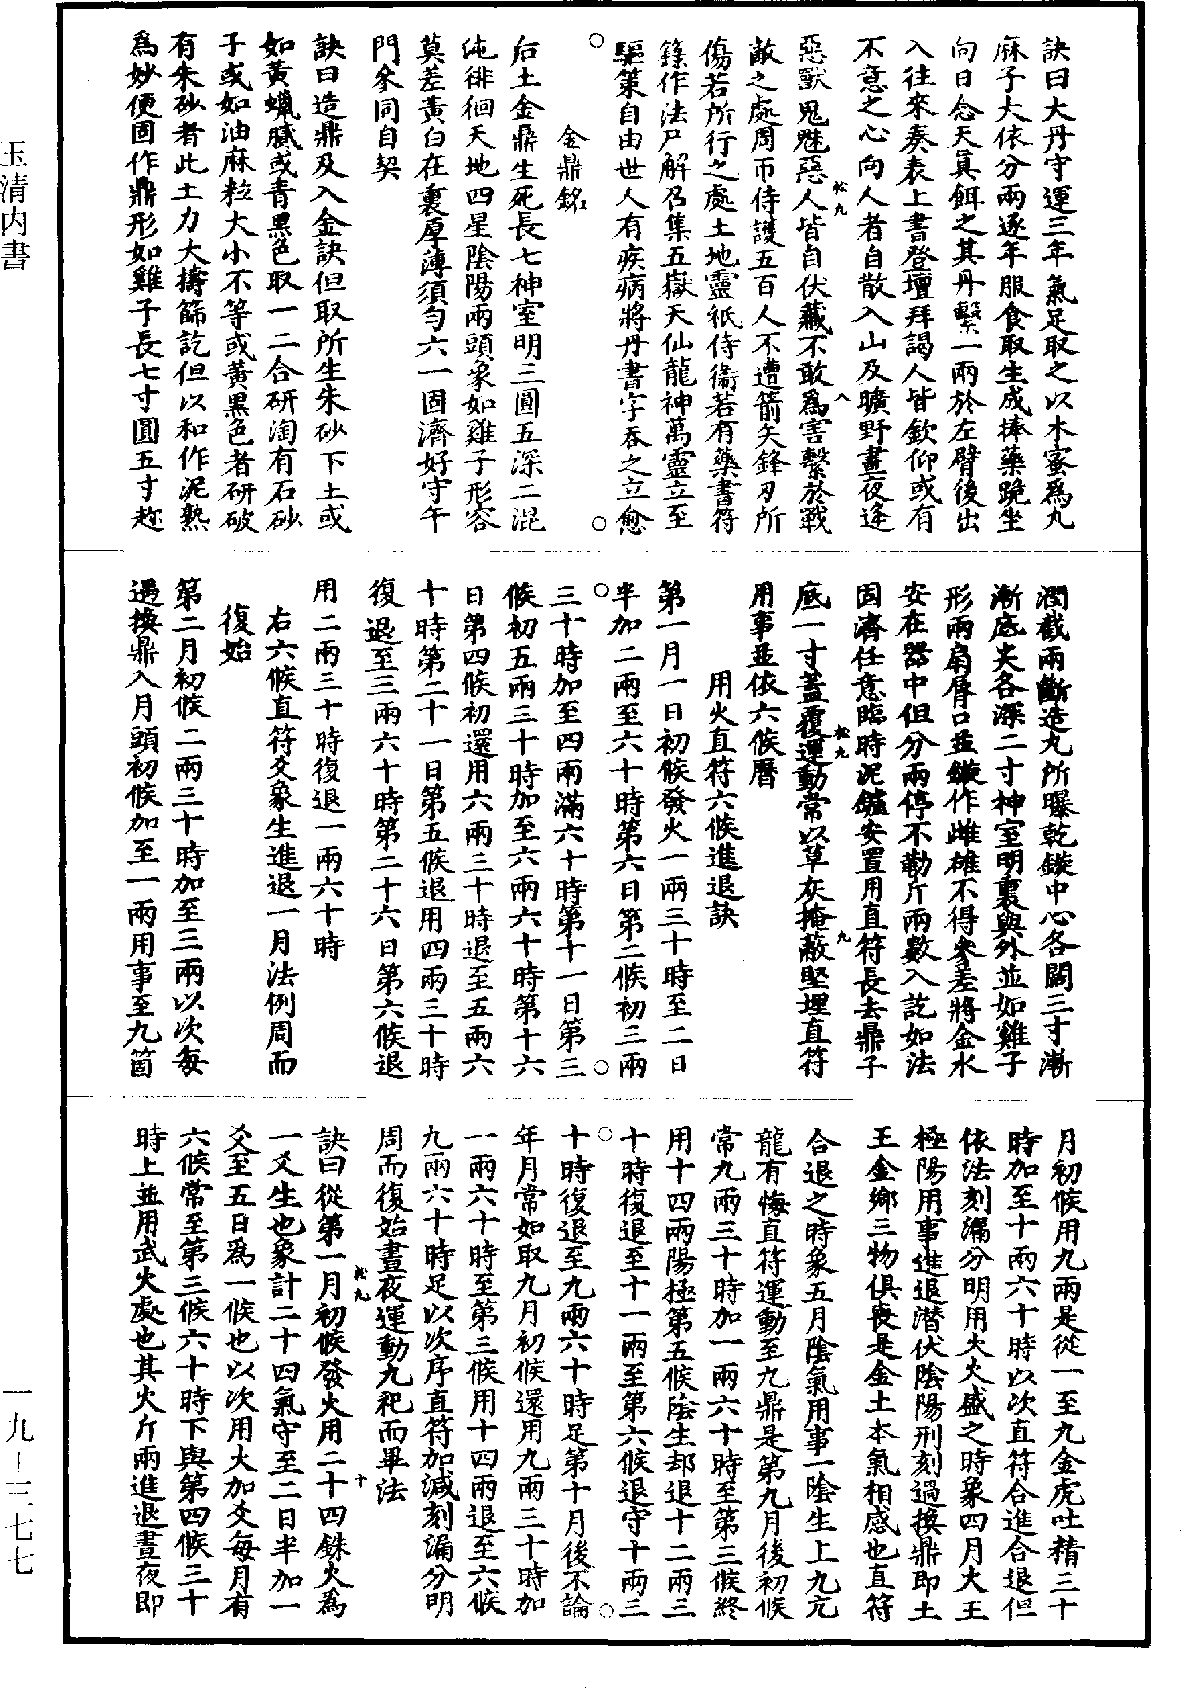 玉清內書
訣曰大丹守運三年氣足取之以木蜜為九
麻子大依分兩逐年服食取生成棒藥跪坐
向日念天真餌之其丹繫一兩於左臂後出
入往來奏表上書登壇拜謁人皆欽仰或有
不意之心向人者自散入山及曠野晝夜逢
惡獸鬼魅惡人皆自伏藏不敢為害繫於戰
敵之處周帀侍護五百人不遭箭矢鋒刃所
傷若所行之處土地靈祇侍衛若有藥書符
籙作法尸解召集五嶽天仙龍神萬靈立至
驅策自由世人有疾病將丹書字吞之立愈
金鼎銘
后土金鼎生死長七神室明三圓五深二混
沌徘徊天地四星陰陽兩頭象如雞子形容
莫差黃白在裏厚薄須勻六一固濟好守午
門叅同自契
訣曰造鼎及入金訣但取所生朱砂下土或
如黃蠟膩或青黑色取一二合研淘有石砂
子或如油麻粒大小不等或黃黑色者研破
有朱砂者此土力大擣篩訖但以和作泥熟
為妙便固作鼎形如雞子長七寸圓五寸趂
潤截兩斷造九所曝乾鏇中心各闊三寸漸
漸底尖各深二寸神室明裏與外並如雞子
形兩扇脣口並鏇作雌雄不得叅差將金水
安在器中但分兩停不勒斤兩數入訖如法
固濟任意臨時泥鑪安置用直符長去鼎子
底一寸蓋覆運動常以草灰掩蔽堅埋直符
用事並依六候曆
用火直符六候進退訣
第一月一日初候發火一兩三十時至二日
半加二兩至六十時第六日第二候初三兩
三十時加至四兩滿六十時第十一日第三
候初五兩三十時加至六兩六十時第十六
日第四候初還用六兩三十時退至五兩六
十時第二十一日第五候退用四兩三十時
復退至三兩六十時第二十六日第六候退
用二兩三十時復退一兩六十時
右六候直符爻象生進退一月法例周而
復始
第二月初候二兩三十時加至三兩以次每
過換鼎入月頭初候加至一兩用事至九箇
月初候用九兩是從一至九金虎吐精三十
時加至十兩六十時以次直符合進合退但
依法刻漏分明用火火盛之時象四月大王
極陽用事進退潛伏陰陽刑刻過換鼎即土
王金鄉三物俱喪是金土本氣相感也直符
合退之時象五月陰氣用事一陰生上九亢
龍有悔直符運動至九鼎是第九月後初候
常九兩三十時加一兩六十時至第三候終
用十四兩陽極第五候陰生却退十二兩三
十時復退至十一兩至第六候退守十兩三
十時復退至九兩六十時足第十月後不論
年月常如取九月初候還用九兩三十時加
一兩六十時至第三候用十四兩退至六候
九兩六十時足以次序直符加減刻漏分明
周而復始晝夜運動九祀而畢法
訣曰從第一月初候發火用二十四銖火為
一爻生也象計二十四氣守至二日半加一
爻至五日為一候也以次用火加爻每月有
六候常至第三候六十時下與第四候三十
時上並用武火處也其火斤兩進退晝夜即
一九—三七七